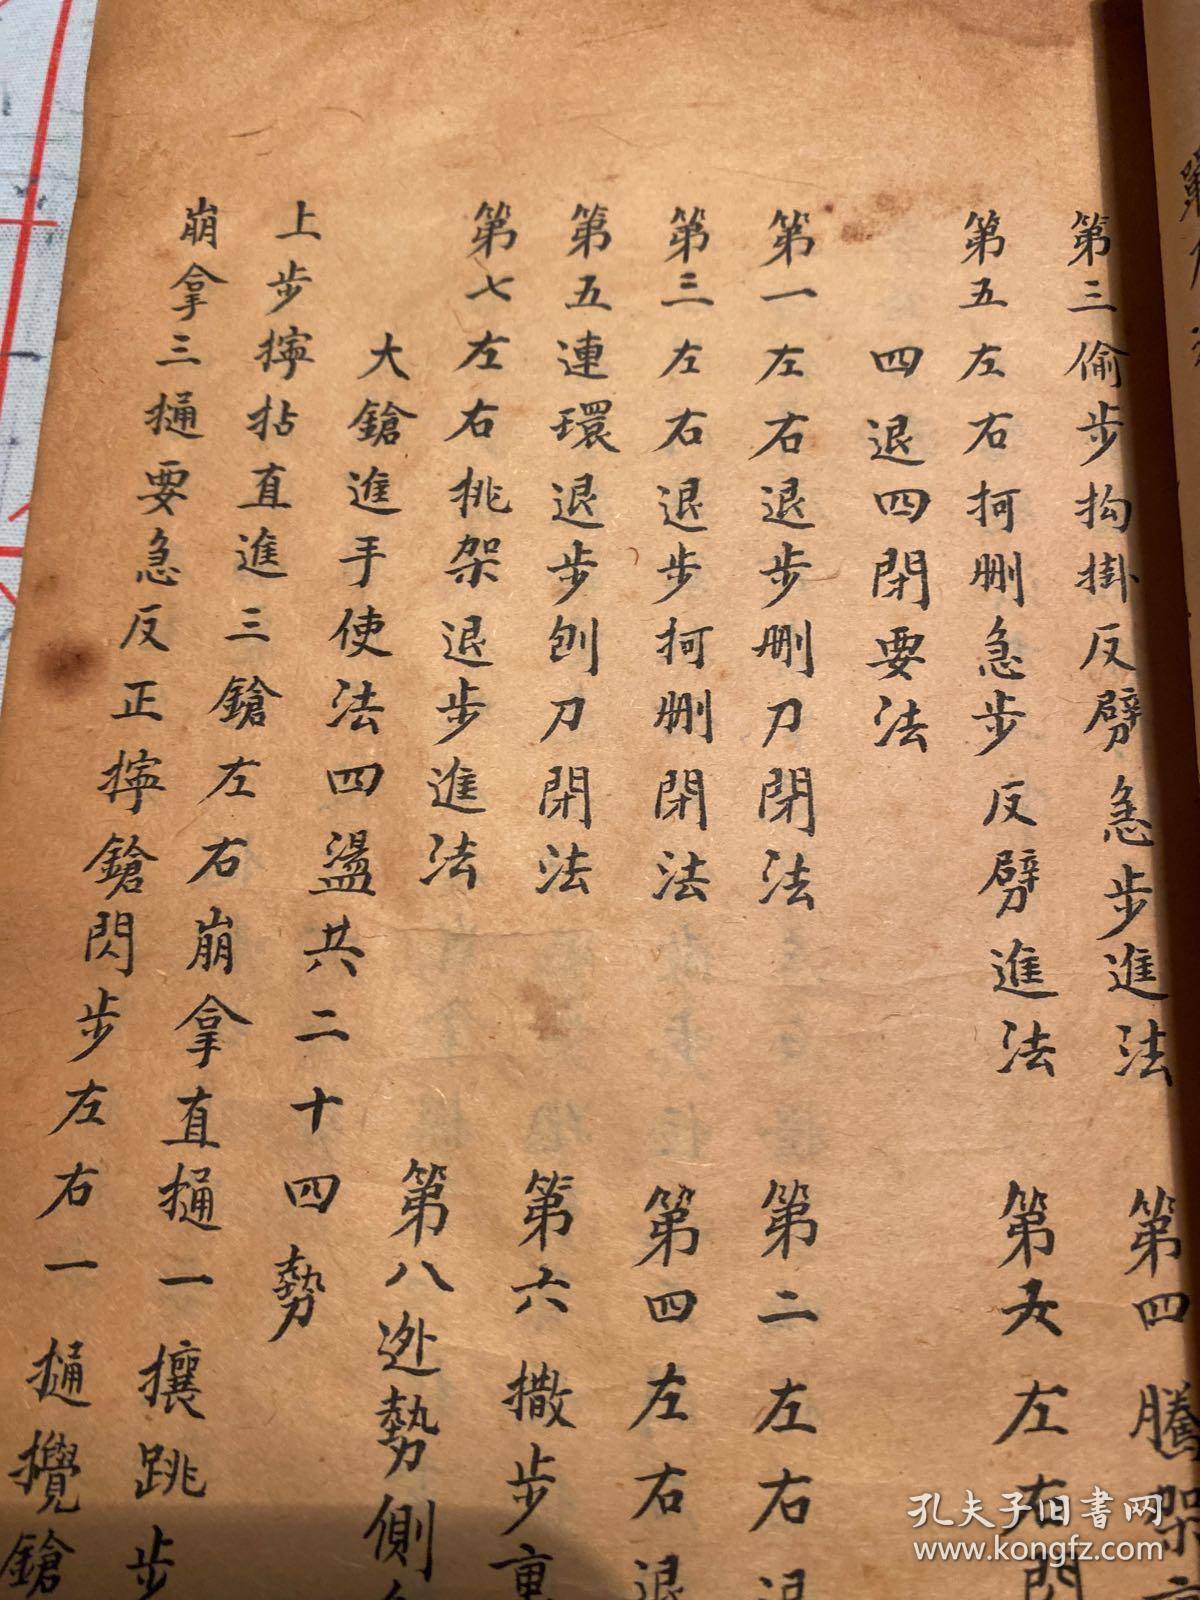 第三偷步抅掛反劈急步進法 第四騰架
第五左右抲删急步反劈進法 第 左右閃
四退四閉要法
第一左右退步删刀閉法 第二左右退
第三左右退步抲删閉法 第四左右退
第五連環退步刨刀閉法 第六撒步重
第七左右挑架退步進法 第八迯勢側
大鎗進手使法四盪共二十四勢
上步擰拈直進三鎗左右崩拿直攡一攘跳步
崩拿三攡要急反正擰鎗閃步左右一攡攪鎗
孔夫子旧书网
www.kongfz.com